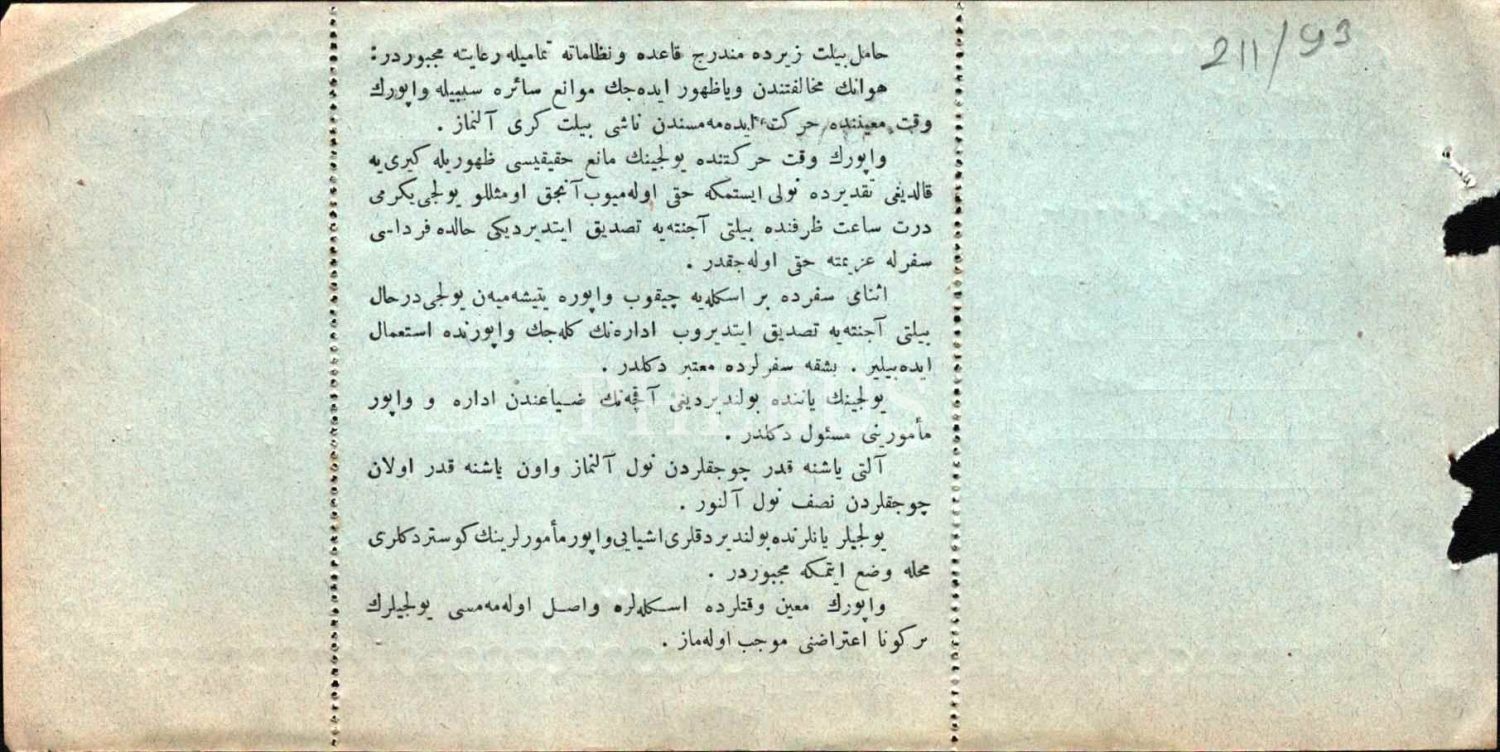 211/93
حامل بیلت زیرده مندرج قاعده و نظاماته تمامیله رعایته مجبوردر :
هوانك مخالفتندن ویاظهور ایده‌جك موانع سائره سببیله واپورك
وقت معیننده حرکت ایده‌مه‌مسندن ناشی بیلت کری آلنماز .
واپورك وقت حرکتنده یولجینك مانع حقیقیسی ظهوریله کیری‌یه
قالدیغی تقدیرده نولی ایستمکه حقی اوله‌میوب آنجق اومثللو یولجی یکرمی
درت ساعت ظرفنده بیلتی آجنته‌یه تصدیق ایتدیردیکی حالده فرداسی
سفرله عزیمته حقی اوله‌جقدر .
اثنای سفرده بر اسکله‌یه چیقوب واپوره یتیشه‌میه‌ن یولجی درحال
بیلتی آجنته‌یه تصدیق ایتدیروب اداره‌نك کله‌جك واپورنده استعمال
ایده‌بیلیر . بشقه سفرلرده معتبر دکلدر .
یولجینك یاننده بولندیردیغی آقچه‌نك ضیاعندن اداره و واپور
مأمورینی مسئول دکلدر .
آلتی یاشنه قدر چوجقلردن نول آلنماز واون یاشنه قدر اولان
چوجقلردن نصف نول آلنور .
یولجیلر یانلرنده بولندیردقلری اشیایی واپور مأمورلرینك کوستردکلری
محله وضع ایتمکه مجبوردر .
واپورك معین وقتلرده اسکله‌لره واصل اوله‌مه‌مسی یولجیلرك
برکونا اعتراضنی موجب اوله‌ماز .
PHEBUS